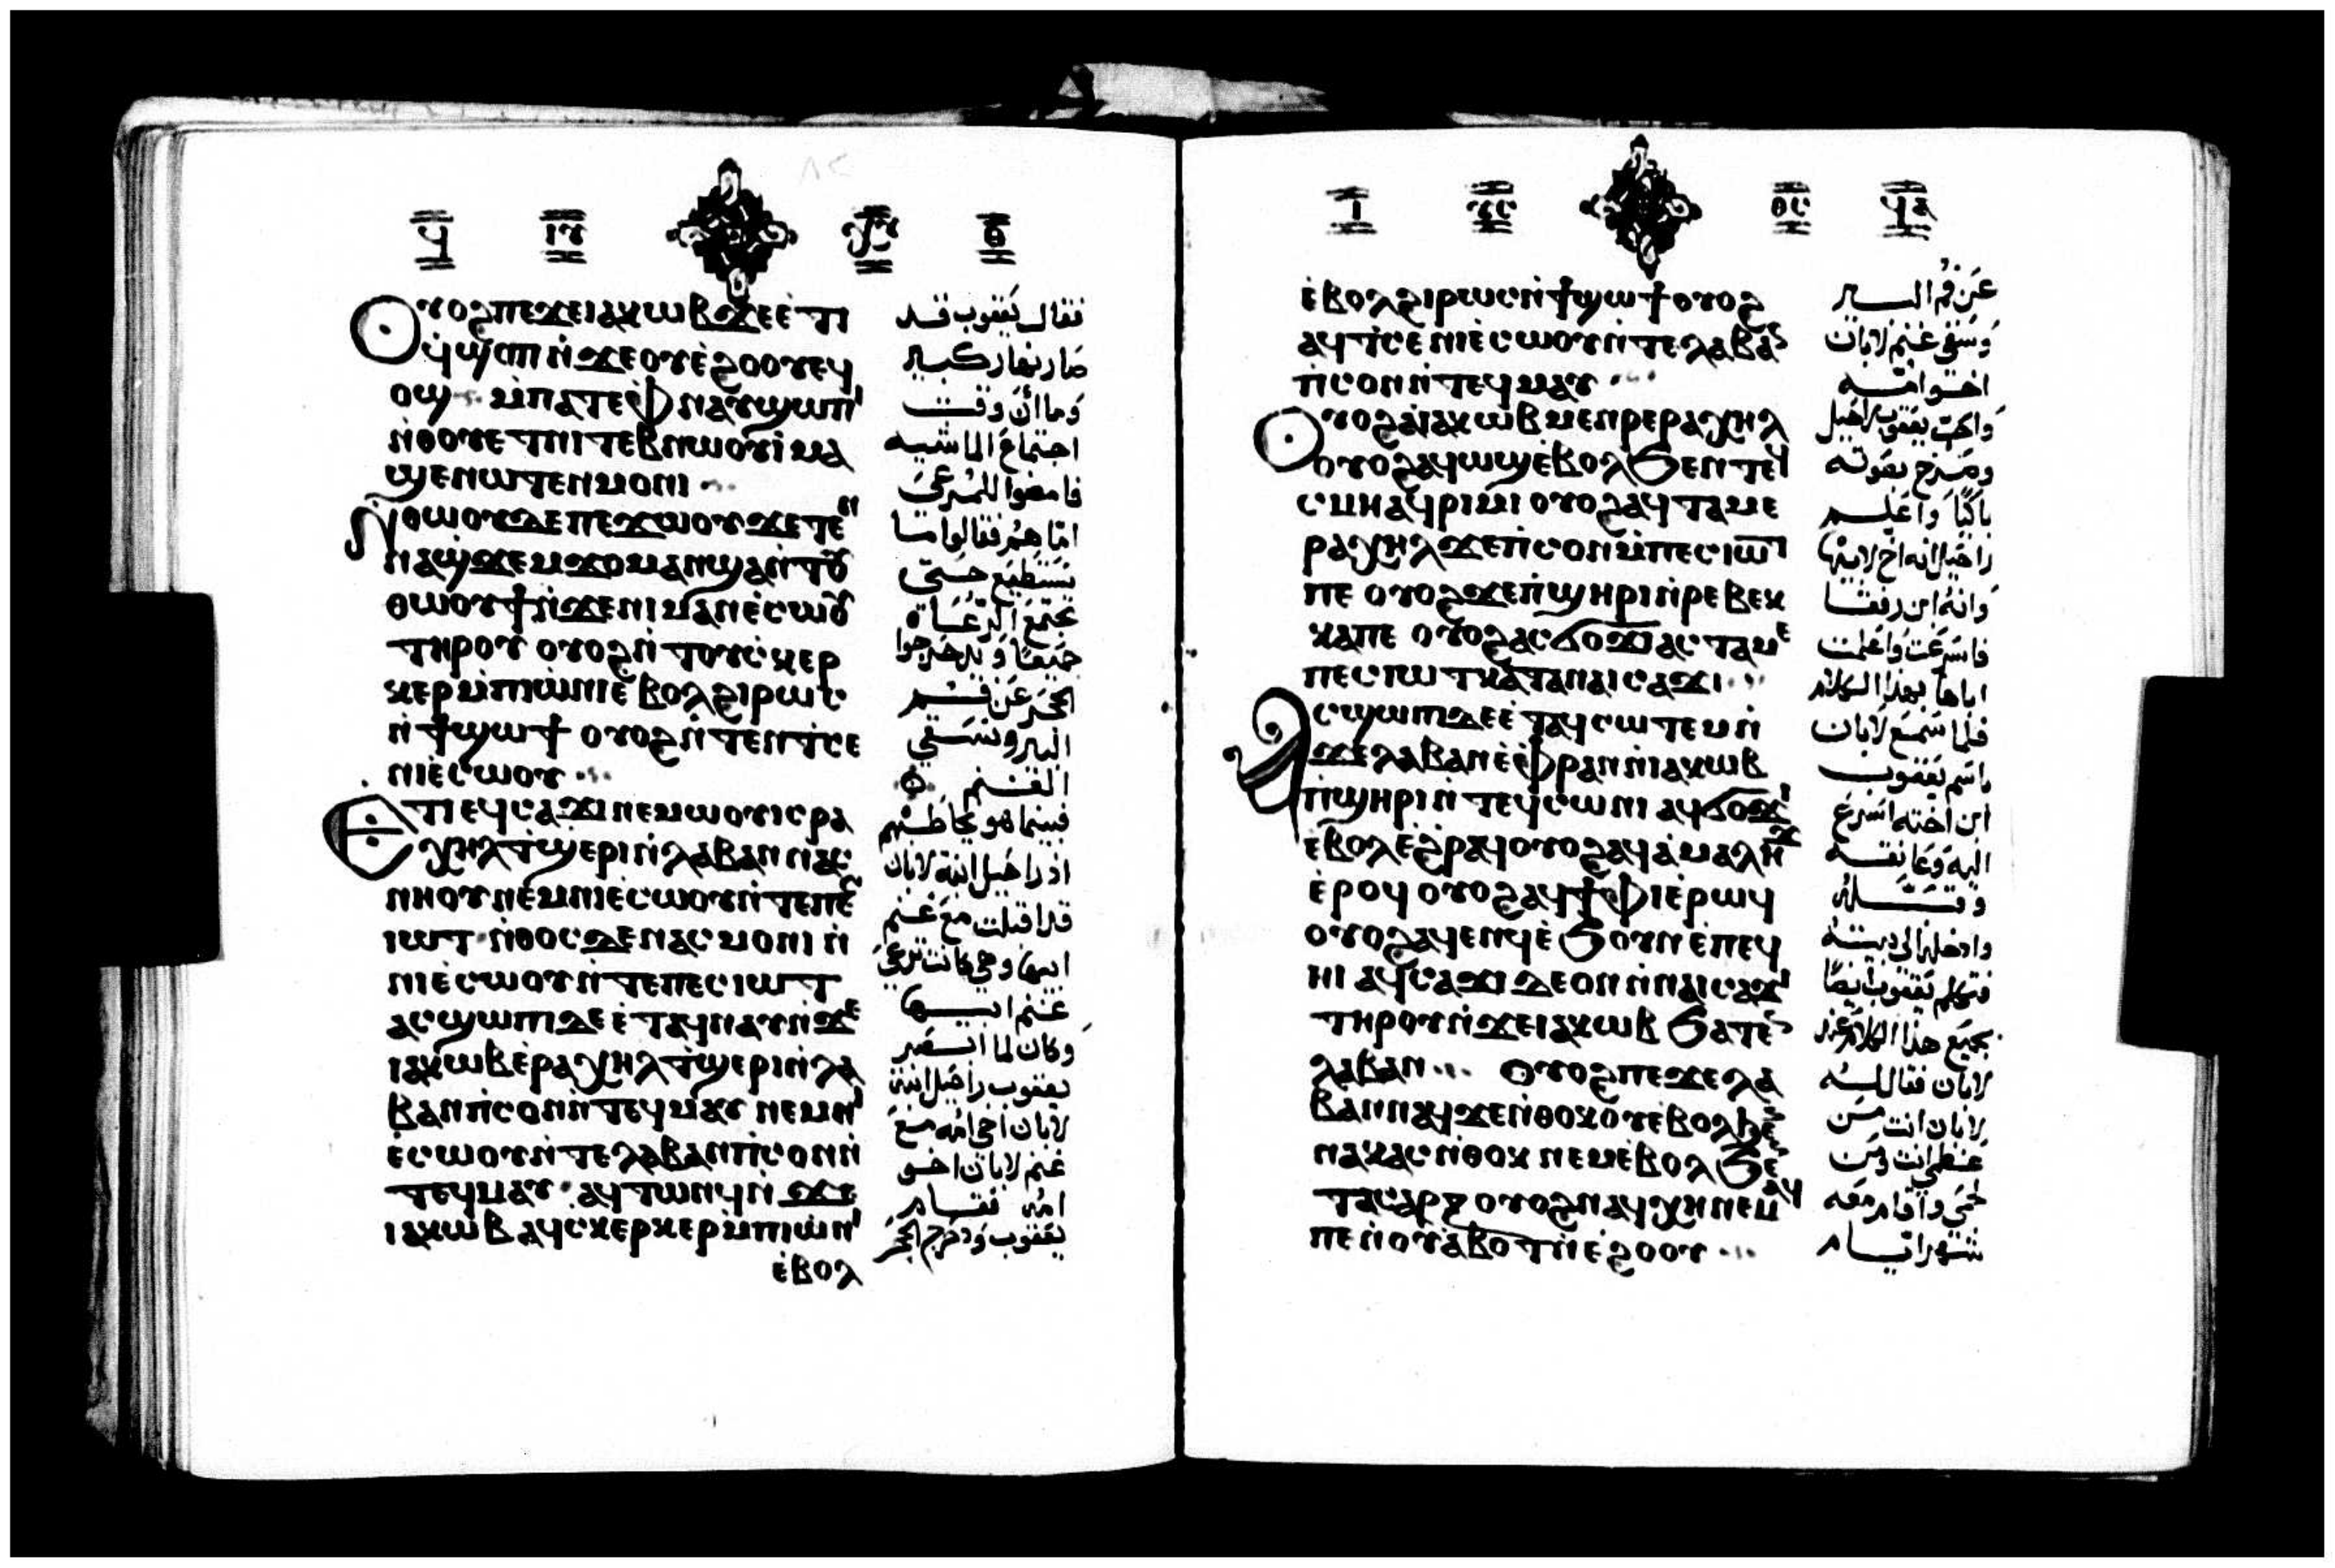 ϥ ⲓⲩ ⲑ
ⲟⲩⲟϩ ⲡⲉϫⲉ ⲓⲁⲕⲱⲃ ϫⲉ ⲉ̀ⲧⲓ
ϥ̀ϣⲟⲡ ⲛ̀ϫⲉ ⲟⲩⲉ̀ϩⲟⲟⲩ ⲉϥ
ⲟϣ ⲙ̀ⲡⲁⲧⲉ ⲫⲛⲁⲩ ϣⲱⲡⲓ
ⲛ̀ⲑⲟⲩⲉⲧ ⲛⲓⲧⲉⲃⲛⲱⲟⲩⲓ̀ ⲙⲁ
ϣⲉⲛⲱⲧⲉⲛ ⲙⲟⲛⲓ
ⲛⲑⲱⲟⲩ ⲇⲉ ⲡⲉϫⲱⲟⲩ ϫⲉ ⲧⲉⲛ
ⲛⲁϣ̀ϫⲉⲙϫⲟⲙ ⲁⲛ ϣⲁⲛ̀ⲧⲟⲩ
ⲑⲱⲟⲩϯ ⲛ̀ϫⲉ ⲛⲓⲙⲁⲛⲉ̀ⲥⲱⲟⲩ
ⲧⲏⲣⲟⲩ ⲟⲩⲟϩ ⲛ̀ⲧⲟⲩⲥ̀ⲕⲉⲣ
ⲕⲉⲣ ⲙ̀ⲡⲓⲱ̀ⲛⲓ ⲉ̀ⲃⲟⲗ ϩⲓⲣⲱⲥ
ⲛ̀ϯϣⲱϯ ⲟⲩⲟϩ ⲛ̀ⲧⲉⲛⲧ̀ⲥⲉ
ⲛⲓⲉ̀ⲥⲱⲟⲩ
ⲉⲧⲓ ⲉϥⲥⲁϫⲓ ⲛⲉⲙⲱⲟⲩ ⲓⲥ ⲣⲁ
ⲭⲏⲗ ⲧ̀ϣⲉⲣⲓ ⲛ̀ⲗⲁⲃⲁⲛ ⲛⲁⲥ
ⲛⲏⲟⲩ ⲛⲉⲙ ⲛⲓⲉ̀ⲥⲱⲟⲩ ⲛ̀ⲧⲉ ⲡⲉⲥ
ⲓⲱⲧ ⲛ̀ⲑⲟⲥ ⲇⲉ ⲛⲁⲥⲙⲟⲛⲓ ⲛ̀
ⲛⲓⲉ̀ⲥⲱⲟⲩ ⲛ̀ⲧⲉ ⲡⲉⲥⲓⲱⲧ
ⲁⲥϣⲱⲡⲓ ⲇⲉ ⲉ̀ⲧⲁϥⲛⲁⲩ ⲛ̀ϫⲉ
ⲓⲁⲕⲱⲃ ⲉ̀ⲣⲁⲭⲏⲗ ⲧ̀ϣⲉⲣⲓ ⲛ̀ⲗⲁ
ⲃⲁⲛ ⲡ̀ⲥⲟⲛ ⲛ̀ⲧⲉϥⲙⲁⲩ ⲛⲉⲙ ⲛⲓ
ⲉ̀ⲥⲱⲟⲩ ⲛ̀ⲧⲉ ⲗⲁⲃⲁⲛ ⲡ̀ⲥⲟⲛ ⲛ̀
ⲧⲉϥⲙⲁⲩ ⲁϥⲧⲱⲛϥ ⲛ̀ϫⲉ
ⲓⲁⲕⲱⲃ ⲁϥⲥⲕⲉⲣⲕⲉⲣ ⲙ̀ⲡⲓⲱ̀ⲛⲓ
ⲉ̀ⲃⲟⲗ
فقال يعقوب قد
صار نهار كبير
وما أن وقت
اجتماع الماشيه
فامضوا للمرعى
امّا هم فقالوا ما
نستطيع حتى
تجتمع الرعاة
جميعًا ويدحرجوا
الحجر عن فم
البير ونسقي
الغنم
فبينما هو يخاطبهم
اذ راحيل ابنة لابان
قد اقبلت مع غنم
ابيها وهي كانت ترعى
غنم ابيها
وكان لما ابصر
يعقوب راحيل ابنة
لابان اخي امه مع
غنم لابان اخو
امه فقام
يعقوب ودحرج الحجر
ⲓ ⲑⲥ ϥⲁ
ⲉ̀ⲃⲟⲗ ϩⲓⲣⲱⲥ ⲛ̀ϯϣⲱϯ ⲟⲩⲟϩ
ⲁϥⲧ̀ⲥⲉ ⲛⲓⲉ̀ⲥⲱⲟⲩ ⲛ̀ⲧⲉ ⲗⲁⲃⲁⲛ
ⲡ̀ⲥⲟⲛ ⲛ̀ⲧⲉϥⲙⲁⲩ
ⲟⲩⲟϩ ⲁ̀ ⲓⲁⲕⲱⲃ ⲙⲉⲛⲣⲉ ⲣⲁⲭⲏⲗ
ⲟⲩⲟϩ ⲁϥⲱϣ ⲉ̀ⲃⲟⲗ ϧⲉⲛ ⲧⲉϥ
ⲥⲙⲏ ⲁϥⲣⲓⲙⲓ ⲟⲩⲟϩ ⲁϥⲧⲁⲙⲉ
ⲣⲁⲭⲏⲗ ϫⲉ ⲡ̀ⲥⲟⲛ ⲙ̀ⲡⲉⲥⲓⲱⲧ
ⲡⲉ ⲟⲩⲟϩ ϫⲉ ⲡ̀ϣⲏⲣⲓ ⲛ̀ⲣⲉⲃⲉⲕ
ⲕⲁ ⲡⲉ ⲟⲩⲟϩ ⲁⲥϭⲟϫⲓ ⲁⲥⲧⲁⲙⲉ
ⲡⲉⲥⲓⲱⲧ ⲕⲁⲧⲁ ⲛⲁⲓⲥⲁϫⲓ
ⲁⲥϣⲱⲡⲓ ⲇⲉ ⲉ̀ⲧⲁϥⲥⲱⲧⲉⲙ ⲛ̀
ϫⲉ ⲗⲁⲃⲁⲛ ⲉ̀ⲫⲣⲁⲛ ⲛ̀ⲓⲁⲕⲱⲃ
ⲡ̀ϣⲏⲣⲓ ⲛ̀ⲧⲉϥⲥⲱⲛⲓ ⲁϥϭⲟϫⲓ
ⲉ̀ⲃⲟⲗ ⲉϩ̀ⲣⲁϥ ⲟⲩⲟϩ ⲁϥⲁ̀ⲙⲁⲗⲏϫ
ⲉ̀ⲣⲟϥ ⲟⲩⲟϩ ⲁϥϯⲫⲓ ⲉ̀ⲣⲱϥ
ⲟⲩⲟϩ ⲁϥⲉⲛϥ ⲉ̀ϧⲟⲩⲛ ⲉ̀ⲡⲉϥ
ⲏⲓ ⲁϥⲥⲁϫⲓ ⲇⲉ ⲟⲛ ⲛ̀ⲛⲁⲓⲥⲁϫⲓ
ⲧⲏⲣⲟⲩ ⲛ̀ϫⲉ ⲓⲁⲕⲱⲃ ϧⲁⲧⲉⲛ
ⲗⲁⲃⲁⲛ ⲟⲩⲟϩ ⲡⲉϫⲉ ⲗⲁ
ⲃⲁⲛ ⲛⲁϥ ϫⲉ ⲛ̀ⲑⲟⲕ ⲟⲩⲉ̀ⲃⲟⲗ ϧⲉⲛ
ⲛⲁⲕⲁⲥ ⲛ̀ⲑⲟⲕ ⲛⲉⲙ ⲉ̀ⲃⲟⲗ ϧⲉⲛ
ⲧⲁⲥⲁⲣⲝ ⲟⲩⲟϩ ⲛⲁϥⲭⲏ ⲛⲉⲙⲁϥ
ⲡⲉ ⲛ̀ⲟⲩⲁ̀ⲃⲟⲧ ⲛ̀ⲉ̀ϩⲟⲟⲩ
عن فم البير
وسقى غنم لابان
اخو امه
واحب يعقوب راحيل
وصرخ بصوته
باكيًا واعلم
راحيل انه اخ لابيها
وانه ابن رفقا
فاسرعت واعلمت
اباها بهذا الكلام
فلما سمع لابان
باسم يعقوب
ابن اخته اسرع
اليه وعانقه
وقبّله
وادخله الى بيته
فتكلم يعقوب ايضًا
بجميع هذا الكلام عند
لابان فقال له
لابان انت من
عظمي انت ومن
لحمي واقام معه
شهر ايام